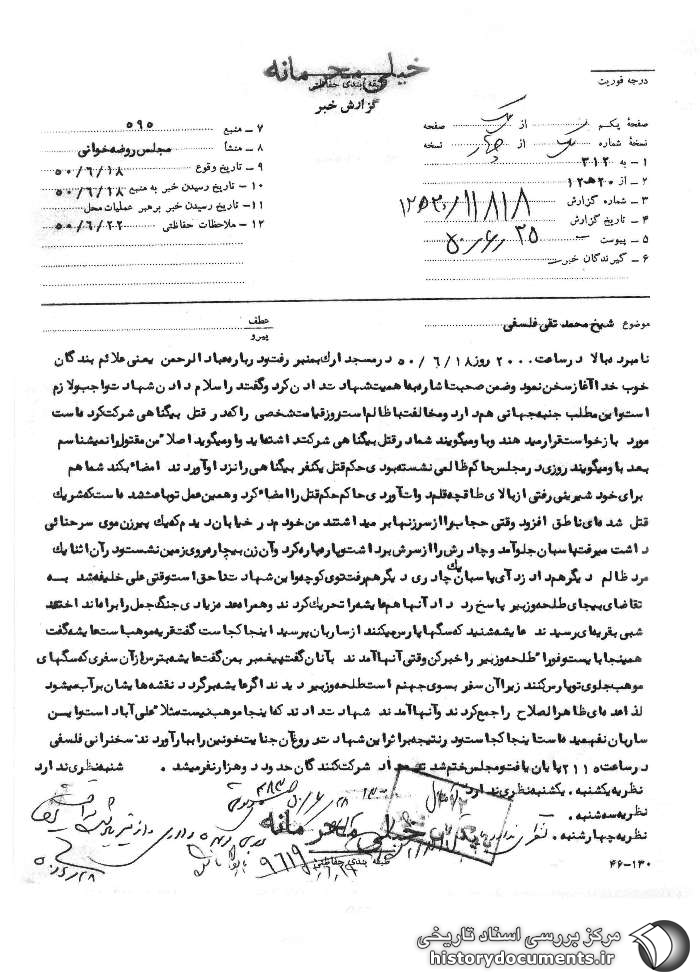 خیلی محرمانه
طبقه بندی حفاظتی
گزارش خبر
درجه فوریت
صفحه یکم از یک صفحه
نسخه شماره یک از چهار نسخه
۱ ـ به ۳۱۲
۲ ـ از ۲۰ هـ ۱۲
۳ ـ شماره گزارش ۱۱۸۱۸
۴ ـ تاریخ گزارش
۵ ـ پیوست
۶ ـ گیرندگان خبر
۷ ـ منبع ۵۹۵
۸ ـ منشأ مجلس روضه خوانی
۹ ـ تاریخ وقوع ۵۰/۶/۱۸
۱۰ ـ تاریخ رسیدن خبر به منبع ۵۰/۶/۱۸
۱۱ ـ تاریخ رسیدن خبر برهبر عملیات محل
۱۲ ـ ملاحظات حفاظتی ۵۰/۶/۲۲
موضوع شیخ محمد تقی فلسفی
عطف
پیرو
نامبرده بالا در ساعت ۲۰۰۰ روز ۵۰/۶/۱۸ در مسجد ارك بمنبر رفت و درباره عباد الرحمن یعنی علائم بندگان
خوب خدا آغاز سخن نمود و ضمن صحبت اشاره به اهمیت شهادت دادن کرد و گفتند راسلام دادن شهادت واجب و لازم
است و این مطلب جنبه جهانی هم دارد و مخالفت با ظالم است روز قیامت شخصی را که در قتل بیگناهی شرکت کرده است
مورد بازخواست قرار میدهند و با و میگویند شما در قتل بیگناهی شرکت داشته اید و او میگوید اصلا" من مقتول را نمیشناسم
بعد با و میگویند روزی در مجلس حاکم ظالمی نشسته بودی حکم قتل یکنفر بیگناهی را نزد او آوردند امضاء بکند شما هم
برای خود شیرینی رفتی از بالای طاقچه قلم دوات آوردی حاکم حکم قتل را امضاء کرد و همین عمل تو باعث شده است که شریك
قتل شده ای ناطق افزود وقتی حجاب را از سر زنها بر میداشتند من خودم در خیابان دیدم که یك پیرزن موی سر حنائی
داشت میرفت پاسبان جلو آمد و چادرش را از سرش برداشت و پاره پاره کرد و آن زن بیچاره روی زمین نشست و در آن اثنا یك
مرد ظالم دیگر هم داد زد آی پاسبان یك چادری دیگر هم رفت توی کوچه و این شهادت ناحق است وقتی علی خلیفه شد به
تقاضای بیجای طلحه و زبیر پاسخ رد داد آنها هم عایشه را تحریك کردند و همراه عده زیادی جنگ جمل را براه انداختند
شبی بقریه ای رسیدند عایشه شنید که سگها پارس میکنند از ساربان پرسید اینجا کجاست گفت قریه موهب است عایشه گفت
همینجا بایست و فورا" طلحه و زبیر را خبر کن وقتی آنها آمدند بآنان گفت پیغمبر بمن گفت عایشه بترس از آن سفری که سگهای
موهب جلوی تو پارس کنند زیرا آن سفر بسوی جهنم است طلحه و زبیر دیدند اگر عایشه برگردد نقشه هایشان برآب میشود
لذا عده ای ظاهرالصلاح را جمع کردند و آنها آمدند شهادت دادند که اینجا موهب نیست مثلا" علی آباد است و ایـن
ساربان نفهمیده است اینجا کجاست و در نتیجه بر اثر این شهادت دروغ آن جنایت خونین را ببار آوردند سخنرانی فلسفی
در ساعت ۲۱۱۵ پایان یافت و مجلس ختم شد تعداد شرکت کنندگان حدود دو هزار نفر میشد. شنبه نظری ندارد
نظریه یکشنبه. یکشنبه نظری ندارد
نظریه سه شنبه.
نظریه چهارشنبه.
خیلی محرمانه
طبقه بندی حفاظتی
۹۶۱۹
۴۶-۱۳۰
مرکز بررسی اسناد تاریخی
historydocuments.ir